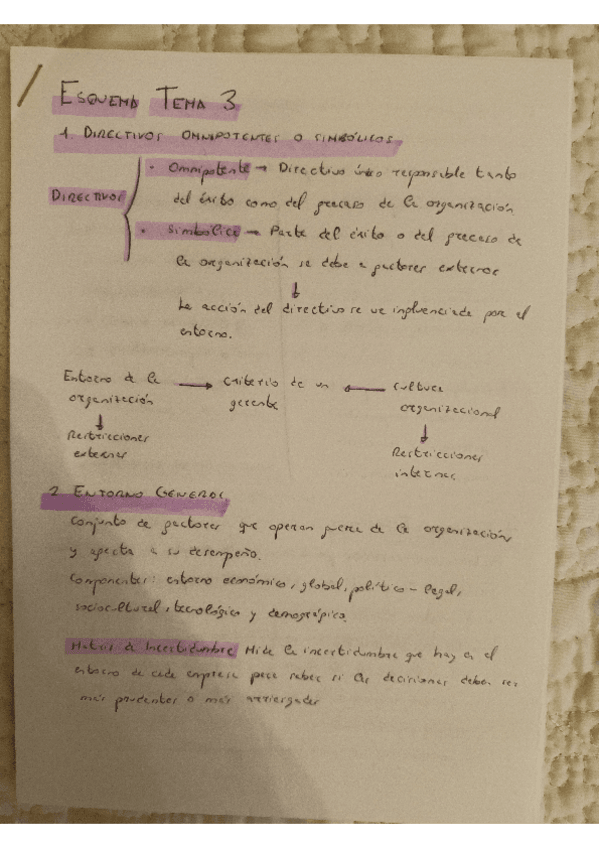 ESQUEMA TEMA 3
1. DIRECTIVOS OMNIPOTENTES O SIMBÓLICOS
DIRECTIVOS
· Omnipotente → Directivo único responsable tanto
del éxito como del fracaso de la organización
· Simbólico → Parte del éxito o del fracaso de
la organización se debe a factores externos
↓
La acción del directivo se ve influenciada por el
entorno.
Entorno de la organización → criterio de un gerente ← cultura organizacional
↓ Restricciones externas
↓ Restricciones internas
2 ENTORNO GENERAL
Conjunto de factores que operan fuera de la organización
y afecta a su desempeño.
Componentes: entorno económico, global, político - legal,
sociocultural, tecnológico y demográfico.
Matriz de Incertidumbre Mide la incertidumbre que hay en el
entorno de cada empresa para saber si las decisiones deben ser
más prudentes o más arriesgadas